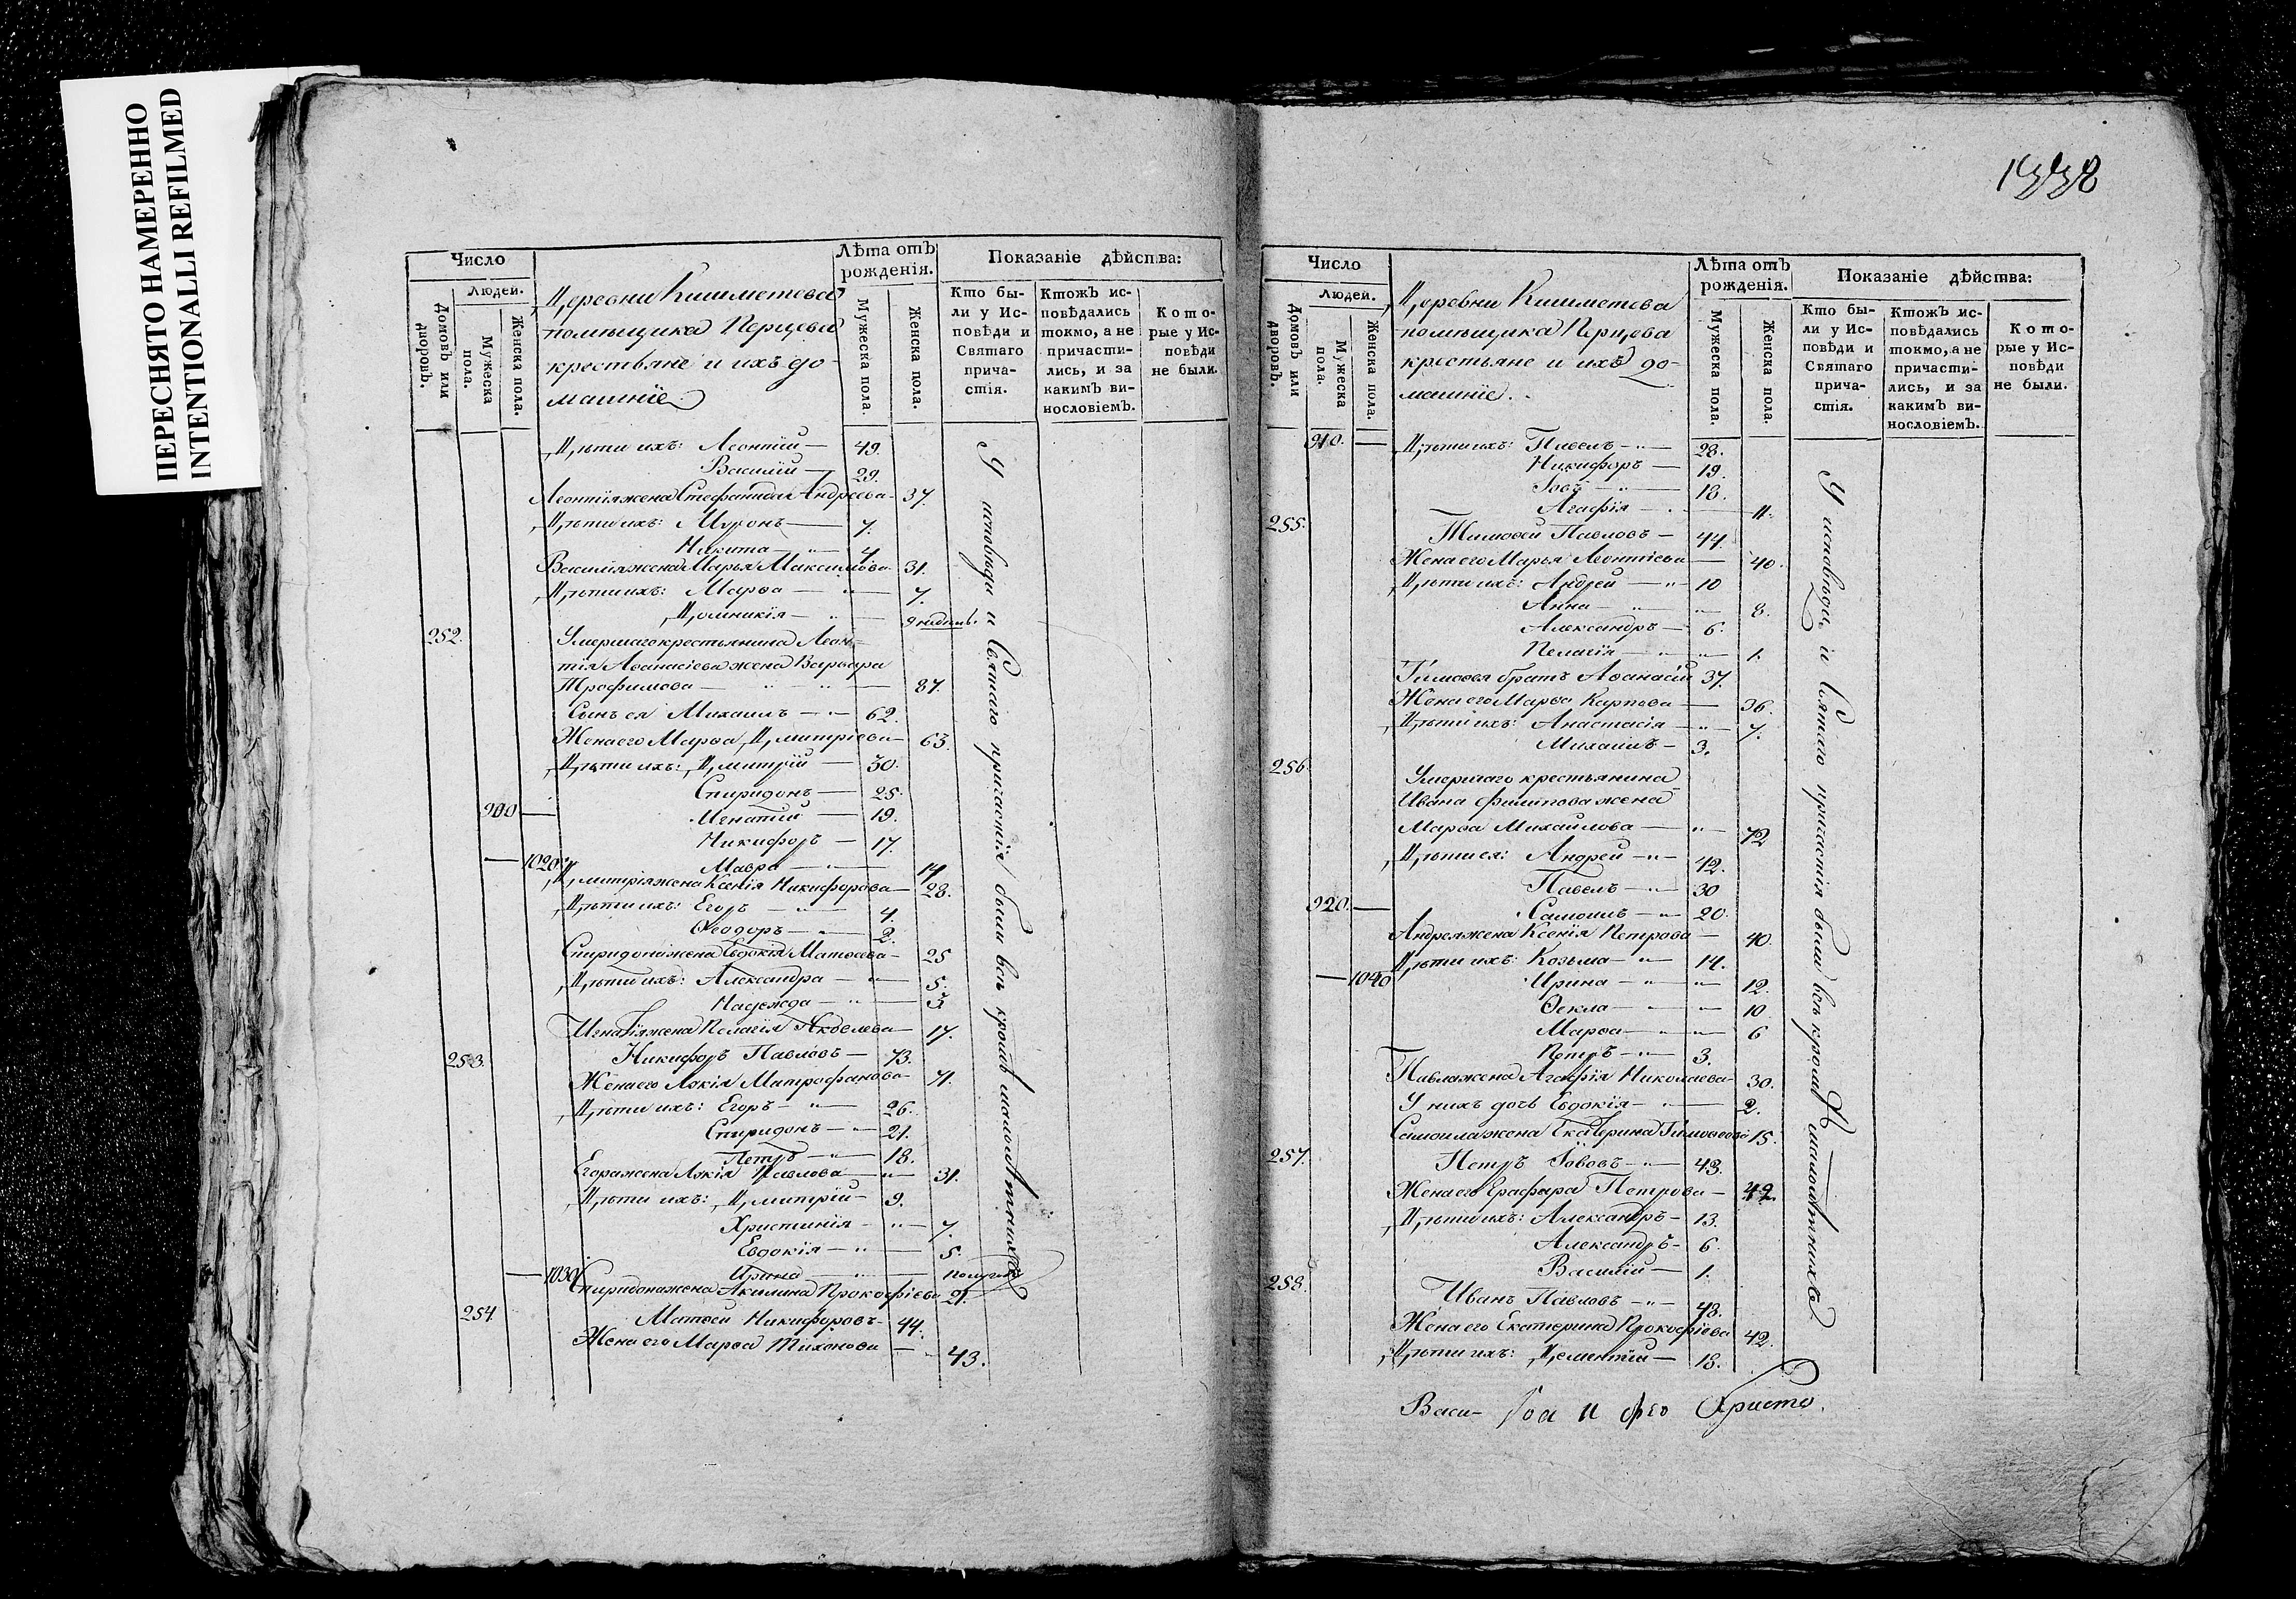 ПЕРЕСНЯТО НАМЕРЕННО
INTENTIONALLI REFILMED
Число
Людей.
Домовъ или дворовъ.
Мужеска пола.
Женска пола.
Деревни Кишметева
помѣщика Перцева
крестьяне и ихъ до-
машніе.
Лѣта отъ рожденія.
Мужеска пола.
Женска пола.
Показаніе дѣйства:
Кто бы-
ли у Ис-
повѣди и
Святаго
прича-
стія.
Ктожъ ис-
повѣдались
токмо, а не
причасти-
лись, и за
какимъ ви-
нословіемъ.
Кото-
рые у Ис-
повѣди
не были.
Дѣти ихъ: Леонтій — 49.
Василій — 29.
Леонтія жена Стефанида Андреева — 37.
Дѣти ихъ: Миронъ — 7.
Никита — 4.
Василія жена Марья Максимова — 31.
Дѣти ихъ: Марѳа — 7.
Домникія — 9 недѣль.
252. Умершаго крестьянина Леон-
тія Аѳанасіева жена Варвара
Трофимова — 87.
Сынъ ея Михаилъ — 62.
Жена его Марѳа Дмитріева — 63.
Дѣти ихъ: Дмитрій — 30.
Спиридонъ — 25.
900 — Игнатій — 19.
Никифоръ — 17.
— 1020. Мавра — 14
Дмитрія жена Ксенія Никифорова — 28.
Дѣти ихъ: Егоръ — 4.
Ѳеодоръ — 2.
Спиридона жена Евдокія Матѳеева — 25
Дѣти ихъ: Александра — 5.
Надежда — 3
Игнатія жена Пелагія Яковлева — 17.
253. Никифоръ Павловъ — 73.
Жена его Лукія Митрофанова — 71.
Дѣти ихъ: Егоръ — 26.
Спиридонъ — 21.
Петръ — 18.
Егора жена Лукія Павлова — 31.
Дѣти ихъ: Дмитрій — 9.
Христинія — 7.
Евдокія — 5.
— 1030. Ирина — полугода
Спиридона жена Акилина Прокофіева 21.
254 Матѳей Никифоровъ — 44.
Жена его Марѳа Тихонова — 43.
У исповѣди и Святаго причастія были всѣ кромѣ малолѣтнихъ
1338
Число
Людей.
Домовъ или дворовъ.
Мужеска пола.
Женска пола.
Деревни Кишметева
помѣщика Перцева
крестьяне и ихъ до-
машніе.
Лѣта отъ рожденія.
Мужеска пола.
Женска пола.
Показаніе дѣйства:
Кто бы-
ли у Ис-
повѣди и
Святаго
прича-
стія.
Ктожъ ис-
повѣдались
токмо, а не
причасти-
лись, и за
какимъ ви-
нословіемъ.
Кото-
рые у Ис-
повѣди
не были.
910. — Дѣти ихъ: Павелъ — 28.
Никифоръ — 19.
Іовъ — 18.
Агафія — 11.
255. Тимоѳей Павловъ — 44.
Жена его Марья Леонтіева — 40.
Дѣти ихъ: Андрей — 10
Анна — 8.
Александръ — 6.
Пелагія — 1.
Тимоѳея братъ Аѳанасій 37.
Жена его Марѳа Карпова — 36.
Дѣти ихъ: Анастасія — 7.
Михаилъ — 3.
256. Умершаго крестьянина
Ивана Филипова жена
Марѳа Михайлова — 72
Дѣти ея: Андрей — 42.
Павелъ — 30
920. — Самоилъ — 20.
Андрея жена Ксенія Петрова — 40.
Дѣти ихъ: Козьма — 14.
— 1040 Ирина — 12.
Ѳекла — 10.
Марѳа — 6
Петръ — 3.
Павла жена Агафія Николаева — 30.
У нихъ дочь Евдокія — 2.
Самоила жена Екатерина Тимоѳеева 15.
257. Петръ Іововъ — 43.
Жена его Петрова — 42.
Дѣти ихъ: Александръ — 13.
Александръ — 6.
Василій — 1.
258. Иванъ Павловъ — 48.
Жена его Екатерина Прокофіева 42.
Дѣти ихъ: Дементій — 18.
У исповѣди и Святаго причастія были всѣ кромѣ малолѣтнихъ
Васи- Христо.